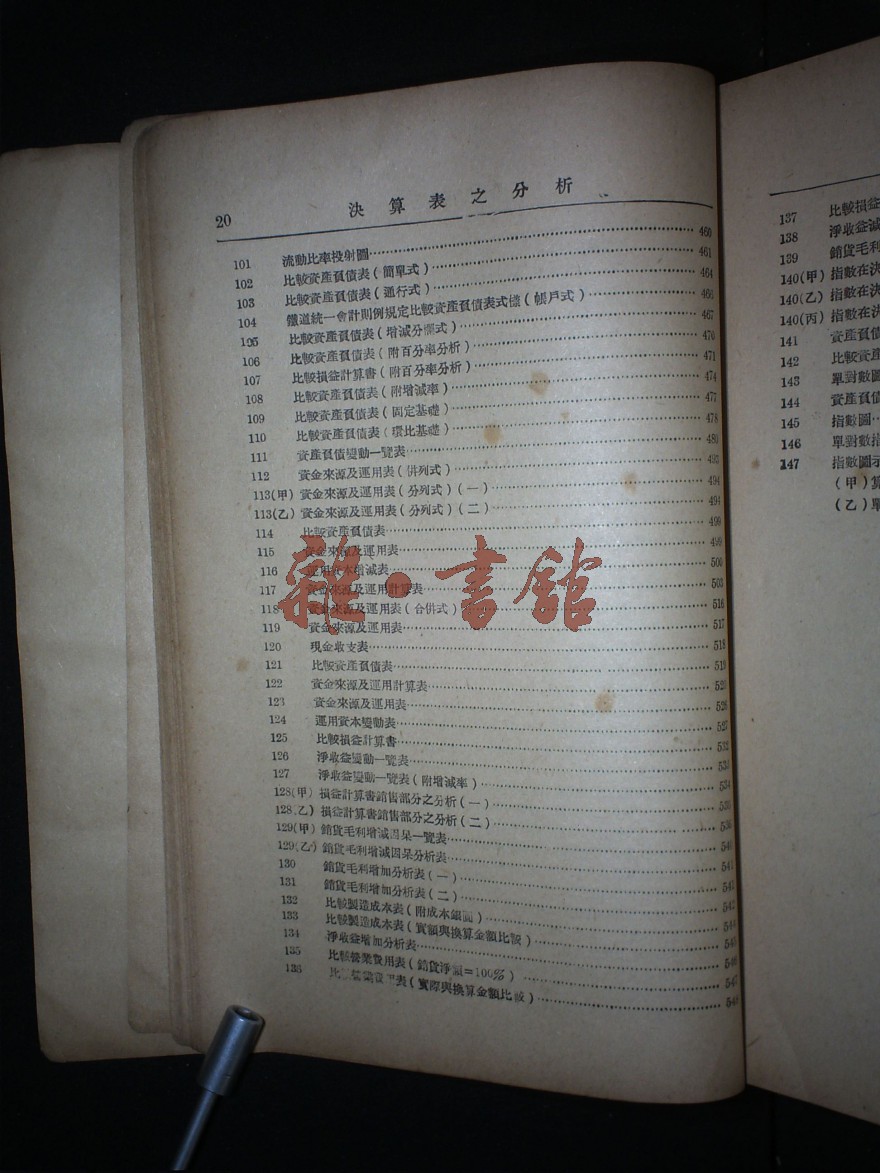 20 決算表之分析
101 流動比率投射圖 460
102 比較資產負債表(簡單式) 461
103 比較資產負債表(通行式) 464
104 鐵道統一會計則例規定比較資產負債表式樣(帳戶式) 466
105 比較資產負債表(增減分欄式) 467
106 比較資產負債表(附百分率分析) 470
107 比較損益計算書(附百分率分析) 471
108 比較資產負債表(附增減率) 474
109 比較資產負債表(固定基礎) 477
110 比較資產負債表(環比基礎) 478
111 資產負債變動一覽表 480
112 資金來源及運用表(併列式) 493
113(甲) 資金來源及運用表(分列式)(一) 494
113(乙) 資金來源及運用表(分列式)(二) 494
114 比較資產負債表 499
115 資金來源及運用表 499
116 運用資本增減表 500
117 資金來源及運用計算表 503
118 資金來源及運用表(合併式) 516
119 資金來源及運用表 517
120 現金收支表 518
121 比較資產負債表 519
122 資金來源及運用計算表 525
123 資金來源及運用表 526
124 運用資本變動表 527
125 比較損益計算書 532
126 淨收益變動一覽表 533
127 淨收益變動一覽表(附增減率) 534
128(甲) 損益計算書銷售部分之分析(一) 535
128(乙) 損益計算書銷售部分之分析(二) 536
129(甲) 銷貨毛利增減因果一覽表 540
129(乙) 銷貨毛利增減因果分析表 541
130 銷貨毛利增加分析表(一) 541
131 銷貨毛利增加分析表(二) 542
132 比較製造成本表(附成本銀圓) 544
133 比較製造成本表(實額與換算金額比較) 545
134 淨收益增加分析表 546
135 比較營業費用表(銷貨淨額=100%) 547
136 比較營業費用表(實際與換算金額比較) 548
雜·書館
137 比較損益
138 淨收益減
139 銷貨毛利
140(甲) 指數在決
140(乙) 指數在決
140(丙) 指數在決
141 資產負債
142 比較資產
143 單對數圖
144 資產負債
145 指數圖
146 單對數指
147 指數圖示
(甲)算
(乙)單